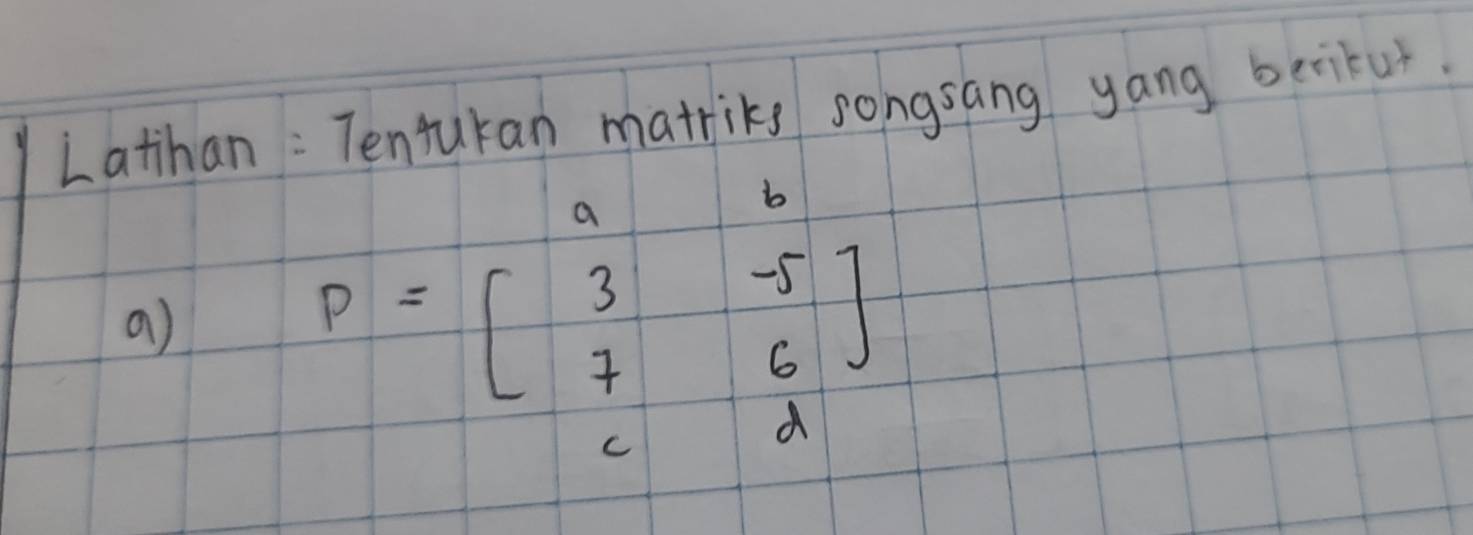 Latihan : Tentukan matriks songsang yang berikut.
a b
a) P = [ 3 -5 ]
7 6
c d